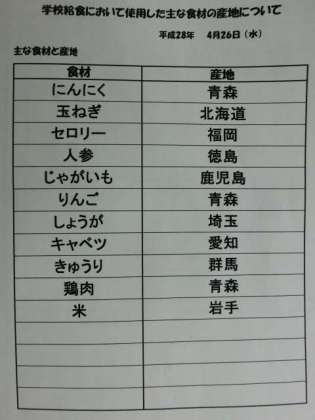 学校給食において使用した主な食材の産地について
平成28年 4月26日(水)
主な食材と産地
食材 産地
にんにく 青森
玉ねぎ 北海道
セロリー 福岡
人参 徳島
じゃがいも 鹿児島
りんご 青森
しょうが 埼玉
キャベツ 愛知
きゅうり 群馬
鶏肉 青森
米 岩手